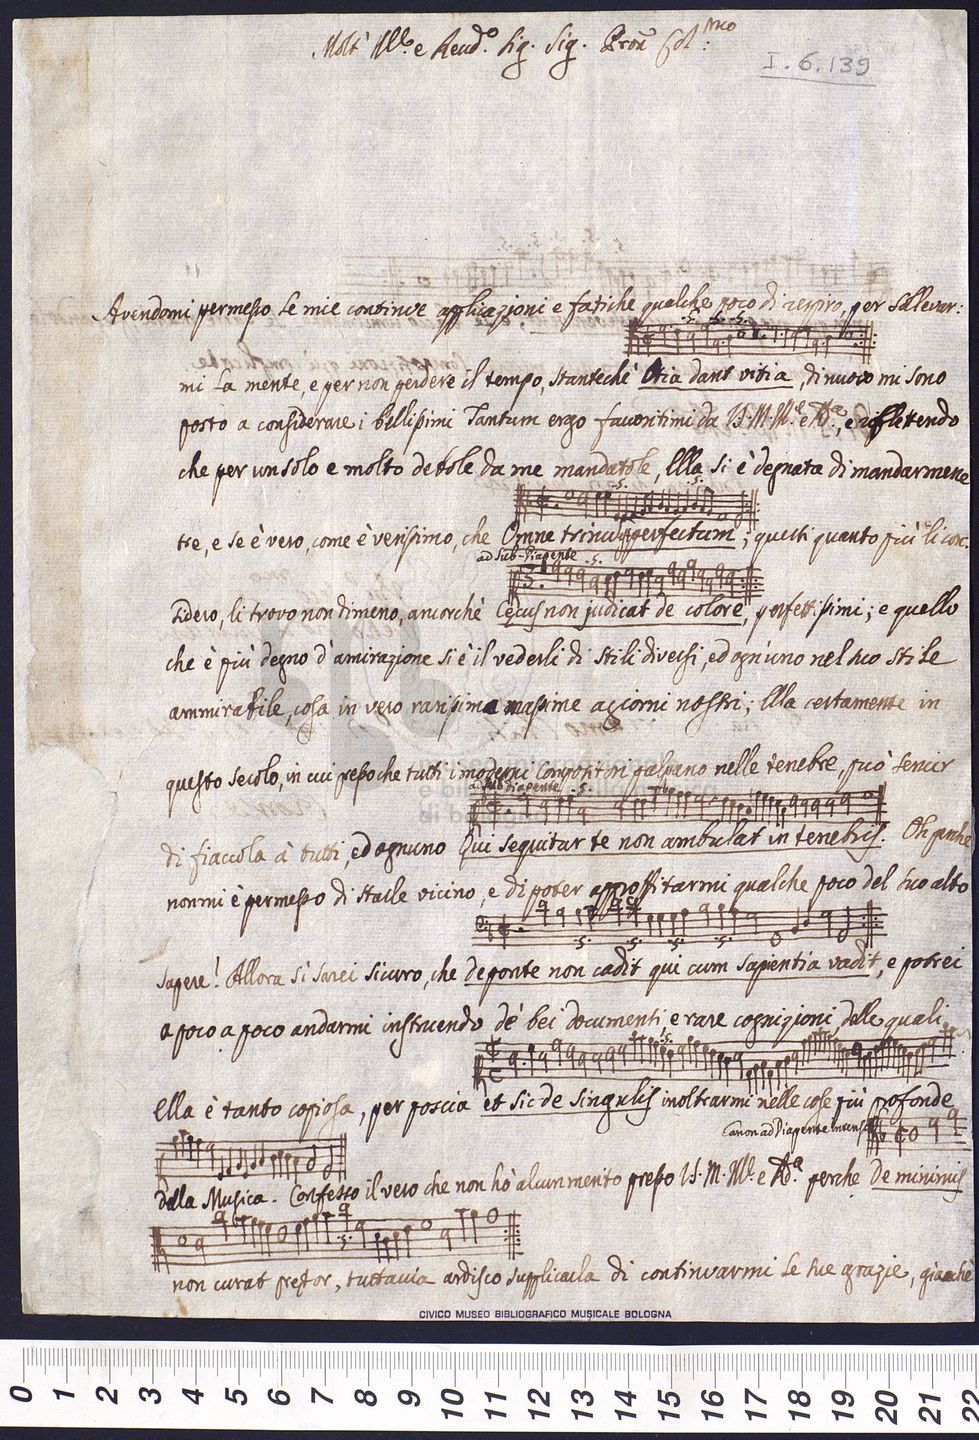 Molt' Ill.e e Revd.o Sig. Sig. Pron Col.mo
I. 6. 139
Avendomi permesso le mie continue applicazioni e fatiche qualche poco di respiro, per sollevar:
.5. .5. .5.
mi la mente, e per non perdere il tempo, stanteché Otia dant vitia, di nuovo mi sono
posto a considerare i bellissimi Tantum ergo favoritimi da V.S. M. Ill.e e Rda, e riflettendo
che per un solo e molto debole da me mandatole, Ella si è degnata di mandarmene
.5. .5.
tre, e se è vero, come è verissimo, che Omne trinum perfectum; questi quanto più li con:
ad Sub-Diapente .5.
sidero, li trovo nondimeno, ancorchè Cecus non judicat de colore, perfettissimi; e quello
che è più degno d'amirazione si è il vederli di stili diversi, ed ogn'uno nel suo stile
ammirabile, cosa in vero rarissima massime a giorni nostri; Ella certamente in
questo secolo, in cui pressoche tutti i moderni Compositori palpano nelle tenebre, può servir
ad Sub Diapente .5.
di fiaccola à tutti, ed ognuno Qui sequitur te non ambulat in tenebris. Oh perche
non mi è permesso di starle vicino, e di poter approffitarmi qualche poco del suo alto
.5. .5. .5. .5.
sapere! Allora sì sarei sicuro, che deponte non cadit qui cum sapientia vadit, e potrei
a poco a poco andarmi instruendo de' bei documenti, e rare cognizioni, delle quali
.5.
Ella è tanto copiosa, per poscia et sic de singulis inoltrarmi nelle cose più profonde
Canon ad Diapente
della Musica. Confesso il vero che non hò alcun merito presso V.S. M. Ill.e e Rda perche De minimis
.5.
non curat pretor, tuttavia ardisco supplicarla di continuarmi le sue grazie, giacchè
CIVICO MUSEO BIBLIOGRAFICO MUSICALE BOLOGNA
0 1 2 3 4 5 6 7 8 9 10 11 12 13 14 15 16 17 18 19 20 21 22